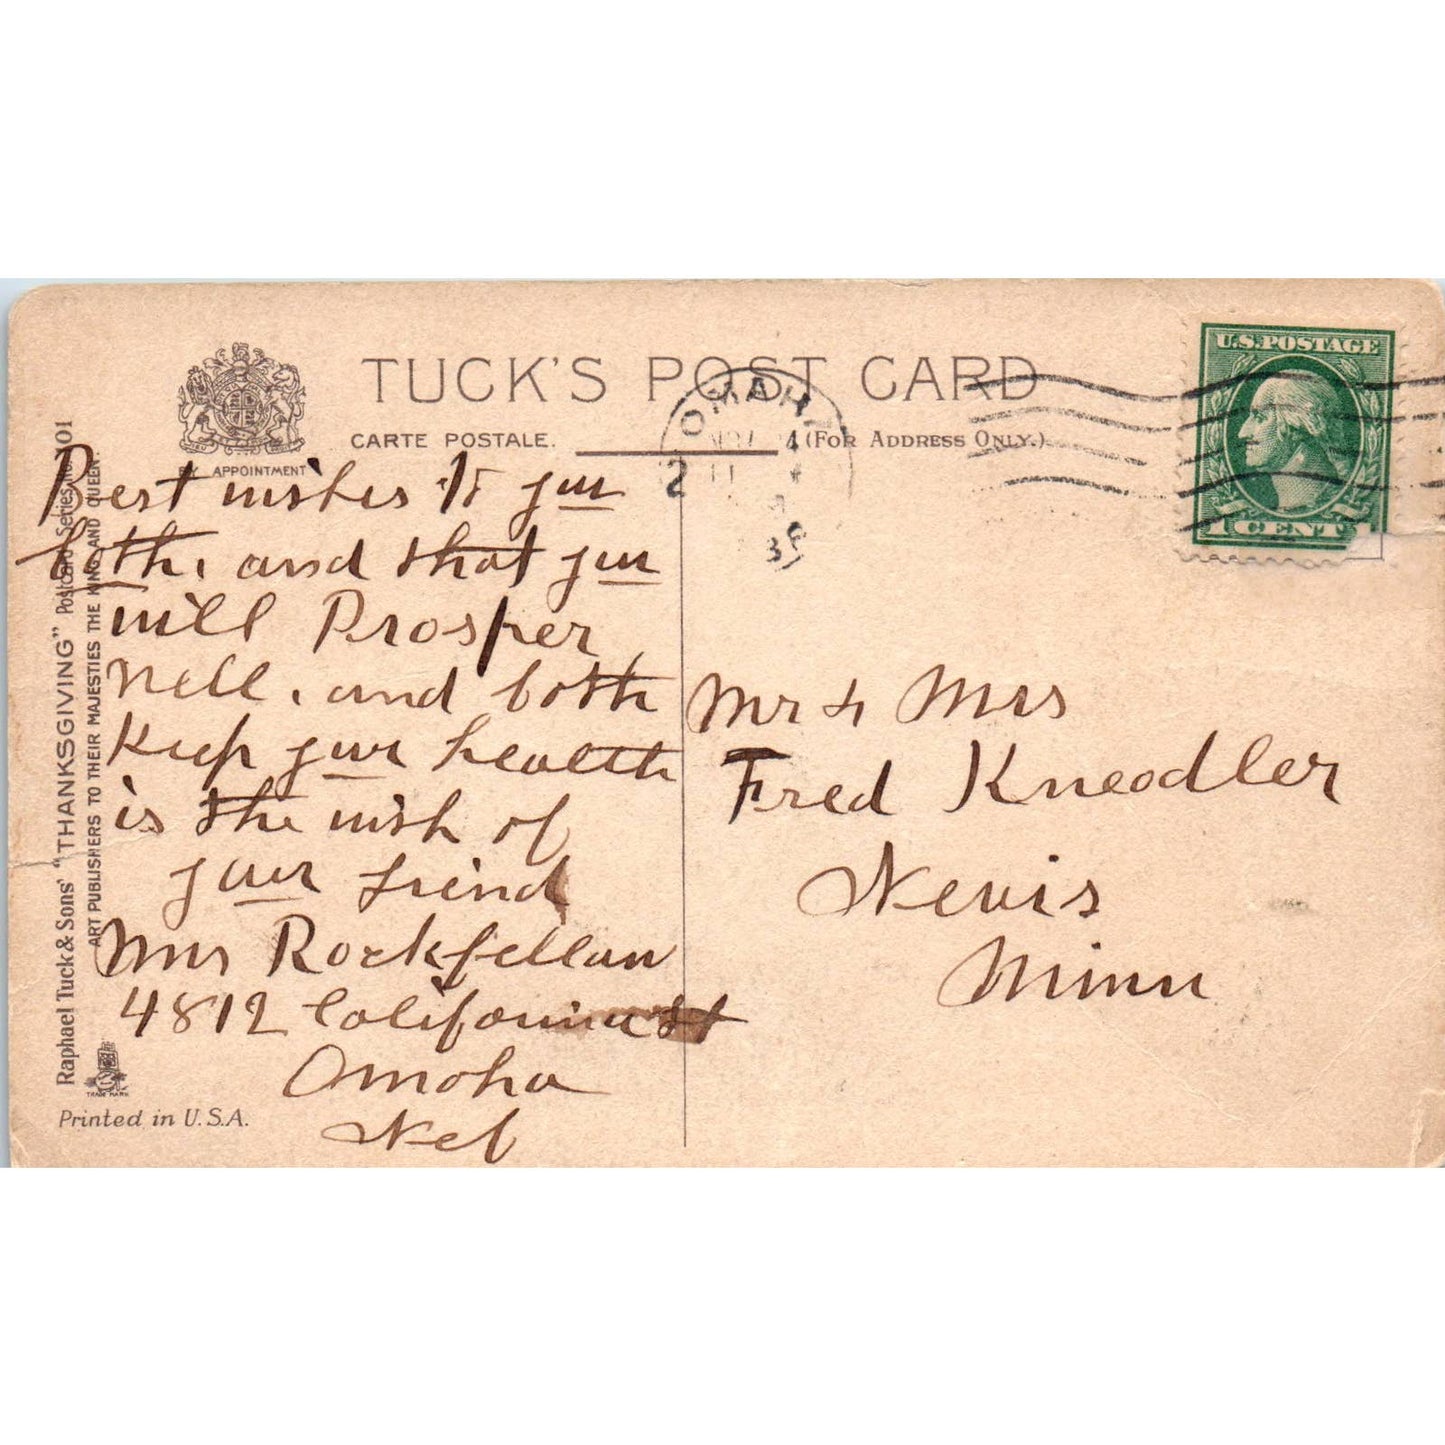 TUCK'S POST CARD
CARTE POSTALE.
(FOR ADDRESS ONLY.)
BY APPOINTMENT
U.S. POSTAGE
1 CENT 1
OMAHA
2
Raphael Tuck & Sons' "THANKSGIVING" Postcard Series No. 101
ART PUBLISHERS TO THEIR MAJESTIES THE KING AND QUEEN.
TRADE MARK
Printed in U.S.A.
Best wishes to you
both, and that you
will Prosper
well, and both
Keep your health
is the wish of
your friend
Mrs Rockfellaw
4812 California st
Omaha
Neb
Mr & Mrs
Fred Kneodler
Nevis
Minn